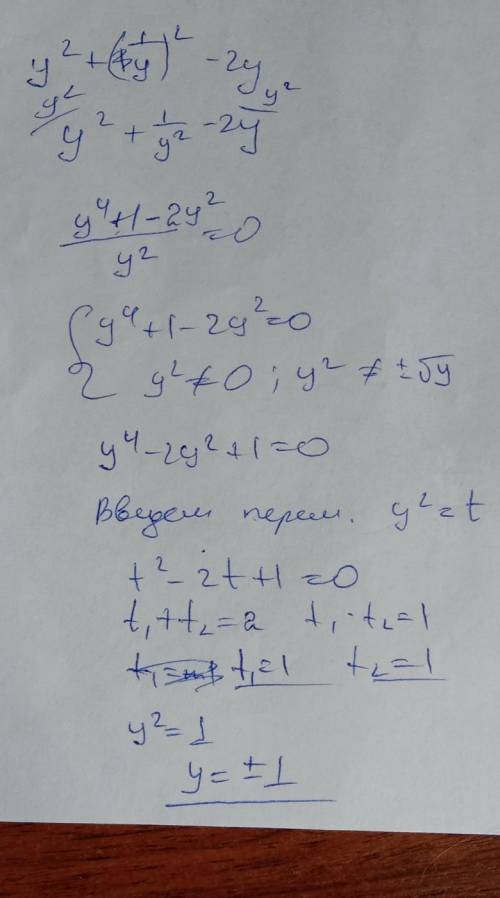 y² + (1/y)² - 2y
y² + 1/y² - 2y
(y⁴+1-2y²)/y² = 0
{ y⁴+1-2y²=0
y²≠0 ; y² ≠ ±√y
y⁴-2y²+1=0
Введем перем. y²=t
t²-2t+1=0
t₁+t₂=2 t₁·t₂=1
t₁=1 t₂=1
y²=1
y=±1